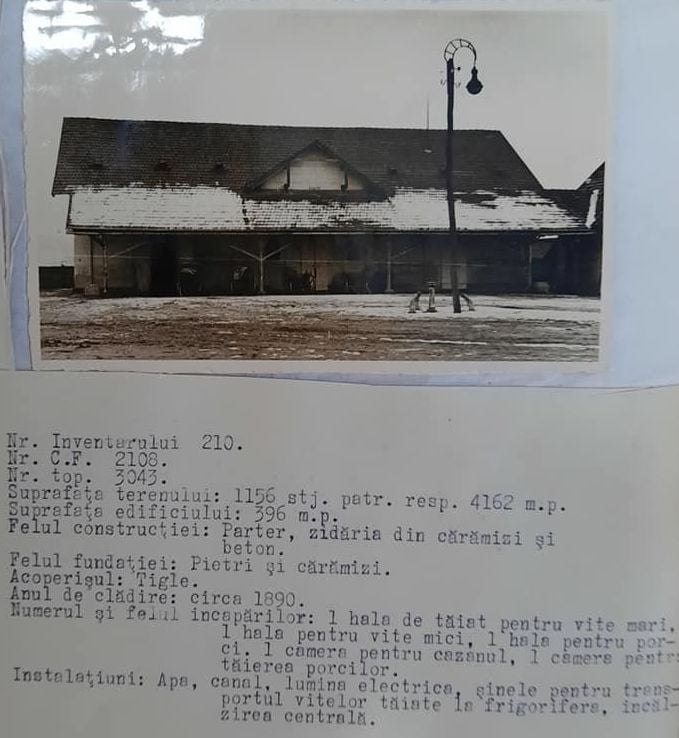 Nr. Inventarului 210.
Nr. C.F. 2108.
Nr. top. 3043.
Suprafaţa terenului: 1156 stj. patr. resp. 4162 m.p.
Suprafaţa edificiului: 396 m.p.
Felul construcţiei: Parter, zidăria din cărămizi şi
beton.
Felul fundaţiei: Pietri şi cărămizi.
Acoperişul: Tigle.
Anul de clădire: circa 1890.
Numerul şi felul incapărilor: 1 hala de tăiat pentru vite mari.
1 hala pentru vite mici, 1 hala pentru por-
ci. 1 camera pentru cazanul, 1 camera pentru
tăierea porcilor.
Instalaţiuni: Apa, canal, lumina electrica, şinele pentru trans-
portul vitelor tăiate la frigorifere, incăl-
zirea centrală.